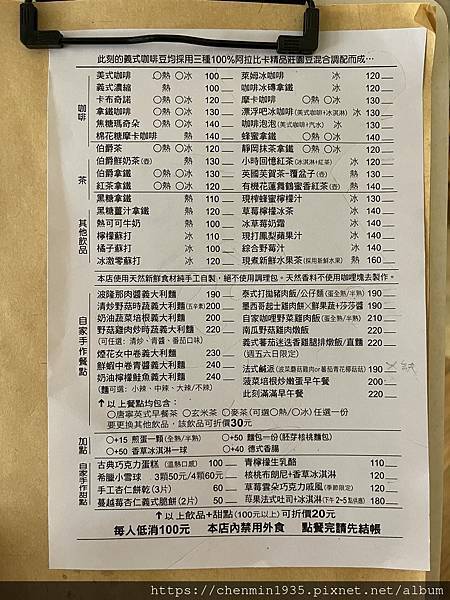 此刻的義式咖啡豆均採用三種100%阿拉比卡精品莊園豆混合調配而成…
咖啡
美式咖啡 ○熱 ○冰 100
義式濃縮 熱 100
卡布奇諾 ○熱 ○冰 130
拿鐵咖啡 ○熱 ○冰 130
焦糖瑪奇朵 ○熱 ○冰 140
棉花糖摩卡咖啡 熱 140
萊姆冰咖啡 冰 120
咖啡冰磚拿鐵 冰 130
摩卡咖啡 ○熱 ○冰 140
漂浮吧冰咖啡(美式咖啡+冰淇淋) 冰 130
咖啡泡泡(美式咖啡+汽水) 冰 130
蜂蜜拿鐵 ○熱 ○冰 140
茶
伯爵茶 ○熱 ○冰 120
伯爵鮮奶茶(壺) 熱 130
伯爵拿鐵 ○熱 ○冰 130
紅茶拿鐵 ○熱 ○冰 130
靜岡抹茶拿鐵 ○熱 ○冰 130
小時回憶紅茶(冰淇淋+紅茶) 冰 130
英國芙蕾茶-覆盆子(壺) 熱 130
有機花蓮舞鶴蜜香紅茶(壺) 熱 140
其他飲品
黑糖拿鐵 熱 110
黑糖薑汁拿鐵 熱 120
熱可可牛奶 熱 120
檸檬蘇打 冰 120
橘子蘇打 冰 100
冰激零蘇打 冰 120
現榨蜂蜜檸檬汁 冰 130
草莓檸檬冰茶 冰 130
冰草莓奶霜 冰 140
現打鳳梨蘋果汁 冰 140
綜合野莓汁 冰 140
現煮新鮮水果茶(採用新鮮水果) 熱 160
本店使用天然新鮮食材純手工自製,絕不使用調理包。天然香料不使用咖哩塊去製作。
自家手作餐點
波隆那肉醬義大利麵 190
清炒野菇時蔬義大利麵(五辛素) 200
奶油蔬菜培根義大利麵 200
野菇雞肉炒時蔬義大利麵 220
(可任選:清炒、青醬、番茄口味)
煙花女中卷義大利麵 230
鮮蝦中卷青醬義大利麵 240
奶油檸檬鮭魚義大利麵 240
(麵可選:小辣、中辣、大辣/不辣)
泰式打拋豬肉飯/公仔麵(蛋全熟/半熟) 190
墨西哥起士雞肉餅+鮮蔬果+莎莎醬 190
自家咖哩野菜雞肉飯(蛋全熟/半熟) 210
南瓜野菇雞肉燉飯 220
義式蕃茄迷迭香雞腿排燉飯/直麵 220
(週五六日限定)
法式鹹派(菠菜蘑菇雞肉or蕃茄青花椰菇菇) 190
菠菜培根炒嫩蛋早午餐 200
此刻滿滿早午餐 220
↑以上餐點均包含:
○唐寧英式早餐茶 ○玄米茶 ○麥茶(可選○熱/○冰)任選一份
要更換其他飲品,該飲品可折價30元
加點
○+15 煎蛋一顆(全熟/半熟) ○+50 麵包一份(胚芽核桃麵包)
○+50 香草冰淇淋一球 ○+40 德式香腸
自家手作甜點
古典巧克力蛋糕(溫熱口感) 100
希臘小雪球 3顆50元/4顆60元
手工杏仁餅乾(3片) 60
蔓越莓杏仁義式脆餅(2片) 50
青檸檬生乳酪 110
核桃布朗尼+香草冰淇淋 130
草莓雲朵巧克力戚風(季節限定) 130
蘋果法式吐司+冰淇淋(下午2~5點供應) 180
↑以上飲品+甜點(100元以上)可折價20元
每人低消100元 本店內禁用外食 點餐完請先結帳
https://chenmin1935.pixnet.net/album